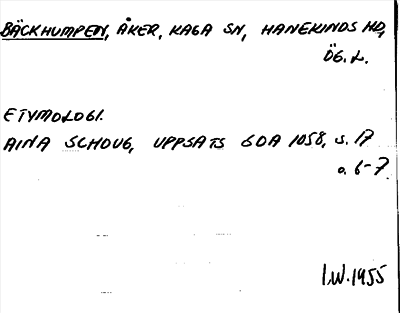 BÄCKHUMPEN, ÅKER, KAGA SN, HANEKINDS HD,
ÖG. L.
ETYMOLOGI.
AINA SCHOUG, UPPSATS GDA 1058, S. 17
o. 6-7
I.W. 1955